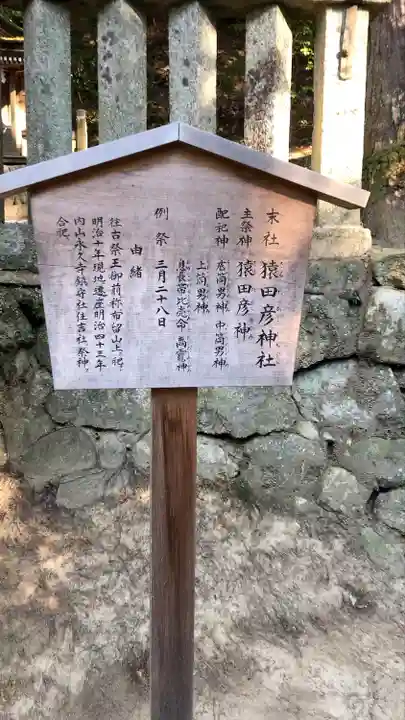 末社 猿田彦神社
主祭神 猿田彦神
配祀神 底筒男神 中筒男神
上筒男神
息長帯比売命 高龗神
例祭 三月二十八日
由緒
往古祭王御前称布留山上に祀
明治十年現地遷座明治四十三年
内山永久寺鎮守社住吉社の祭神
合祀